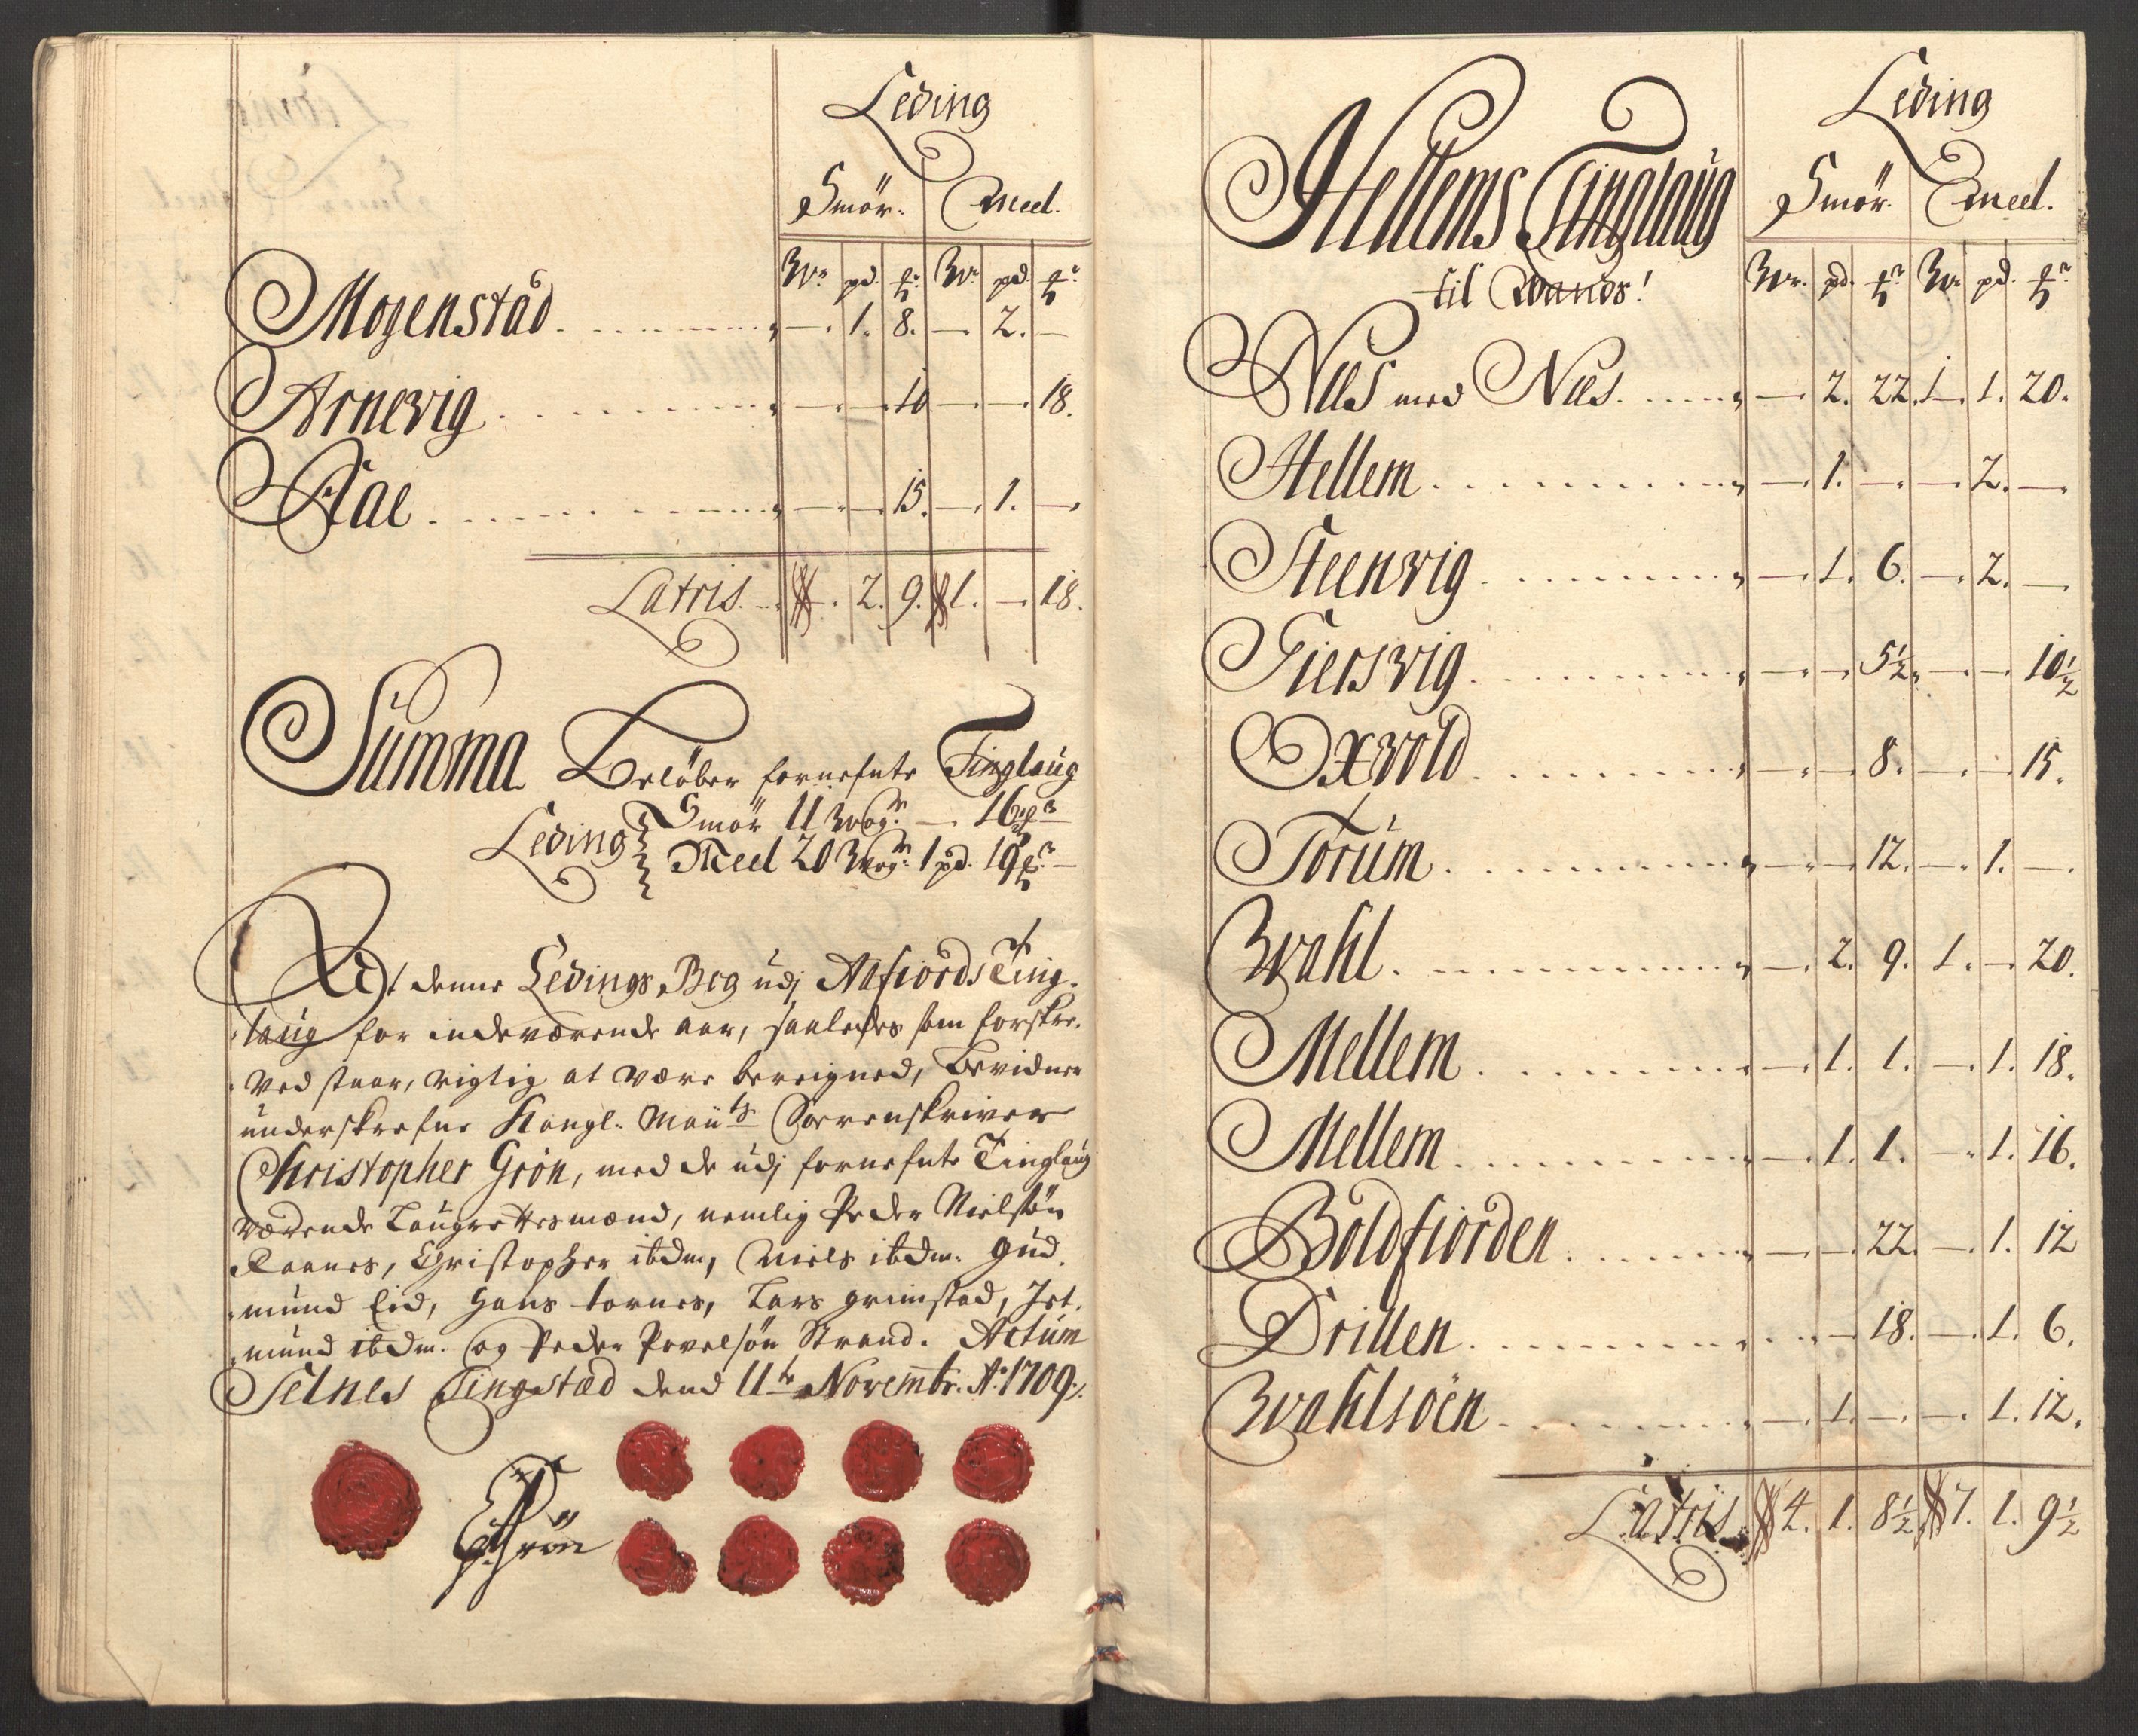 Leding
Smör. Meel.
Wr. pd. ℔r. Wr. pd. ℔r.
Mogenstad . . . . . . . . — . 1. 8. — . 2. —
Arnevig . . . . . . . . — . — . 10 — . — . 18.
Aae . . . . . . . . — . — . 15. — . 1. — .
Latris . . — . 2. 9. 1. — . 18.
Summa Beløber fornefnte Tinglaug
Leding { Smör 11 Wogr. — 16 ℔r
Meel 20 Wogr. 1 pd. 19 ℔r. —
At denne Ledings Beg udj Aafiords Ting-
laug for indeværende aar, saaledes som forskre-
ved staar, rigtig at være bereigned, Bevidner
underskrefne Kongl. Maÿts Sorrenskriver
Christopher Grön, med de udj fornefnte Tinglaug
værende Laugrettesmænd, nemlig Peder Nielsön
Raanes, Christopher ibdm, Niels ibdm. Gud-
mund Eid, Hans tornes, Lars grimstad, Jet-
mund ibdm. og Peder Povelsön Strand. Actum
Selnes Tingstad dend 11te Novembr. Ao. 1709 ./.
CGrön
Leding
Hellems Tinglaug Smör. Meel.
til Wands! Wr. pd. ℔r. Wr. pd. ℔r.
Næs med Næs . . . . — . 2. 22. 1. 1. 20.
Hellem . . . . . . . . — . 1. — . — . 2. — .
Steenvig . . . . . . . . — . 1. 6. — . 2. —
Tiersvig . . . . . . . . — . — . 5½. — . — . 10½
Oxvold . . . . . . . . — . — . 8. — . — . 15.
Torum . . . . . . . . — . — . 12. — . 1. — .
Wahl . . . . . . . . — . 2. 9. 1. — . 20.
Mellem . . . . . . . . — . 1. 1. — . 1. 18.
Mellem . . . . . . . . — . 1. 1. — . 1. 16.
Boldfiorden . . . . . . — . — . 22. — . 1. 12
Drillen . . . . . . . . — . 18. — . 1. 6.
Wahlsöen . . . . . . . . — . 1. — . — . 1. 12.
Latris . 4. 1. 8½ 7. 1. 9½